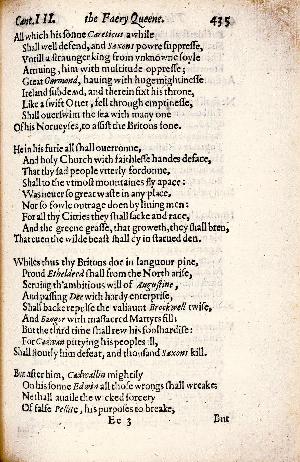 Cant. III. the Faery Queene. 435
All which his sonne Careticus awhile
Shall well defend, and Saxons powre suppresse,
Vntill a straunger king from vnknowne soyle
Arriuing, him with multitude oppresse;
Great Gormond, hauing with huge mightinesse
Ireland subdewd, and therein fixt his throne,
Like a swift Otter, fell through emptinesse,
Shall ouerswim the sea with many one
Of his Norueyses, to assist the Britons fone.
He in his furie all shall ouerronne,
And holy Church with faithlesse handes deface,
That thy sad people vtterly fordonne,
Shall to the vtmost mountaines fly apace:
Was neuer so great waste in any place,
Nor so fowle outrage doen by liuing men:
For all thy Citties they shall sacke and race,
And the greene grasse, that groweth, they shall bren,
That euen the wilde beast shall dy in starued den.
Whiles thus thy Britons doe in languour pine,
Proud Etheldred shall from the North arise,
Seruing th'ambitious will of Augustine,
And passing Dee with hardy enterprise,
Shall backe repulse the valiaunt Brockwell twise,
And Bangor with massacred Martyrs fill;
But the third time shall rew his foolhardise:
For Cadwan pittying his peoples ill,
Shall stoutly him defeat, and thousand Saxons kill.
But after him, Cadwallin mightily
On his sonne Edwin all those wrongs shall wreake;
Ne shall auaile the wicked sorcery
Of false Pellite, his purposes to breake,
Ee 3 But